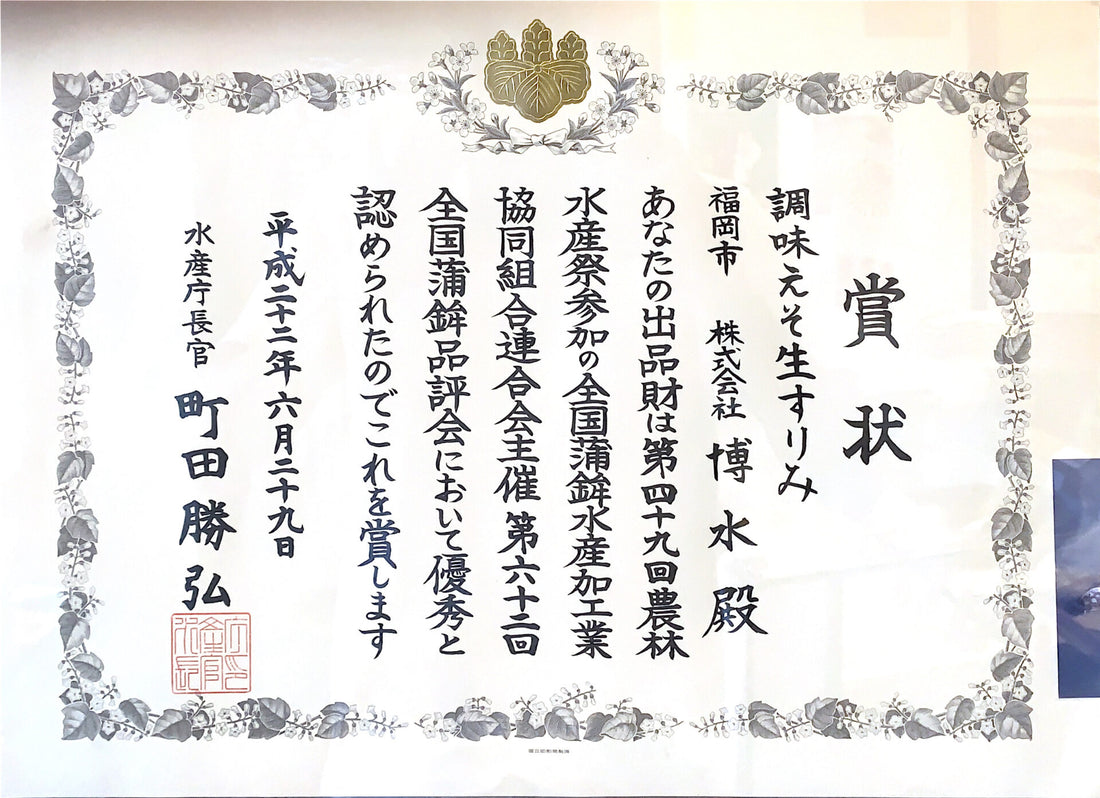 賞状
調味えそ生すりみ
福岡市 株式会社 博水殿
あなたの出品財は第四十九回農林
水産祭参加の全国蒲鉾水産加工業
協同組合連合会主催第六十二回
全国蒲鉾品評会において優秀と
認められたのでこれを賞します
平成二十二年六月二十九日
水産庁長官 町田勝弘